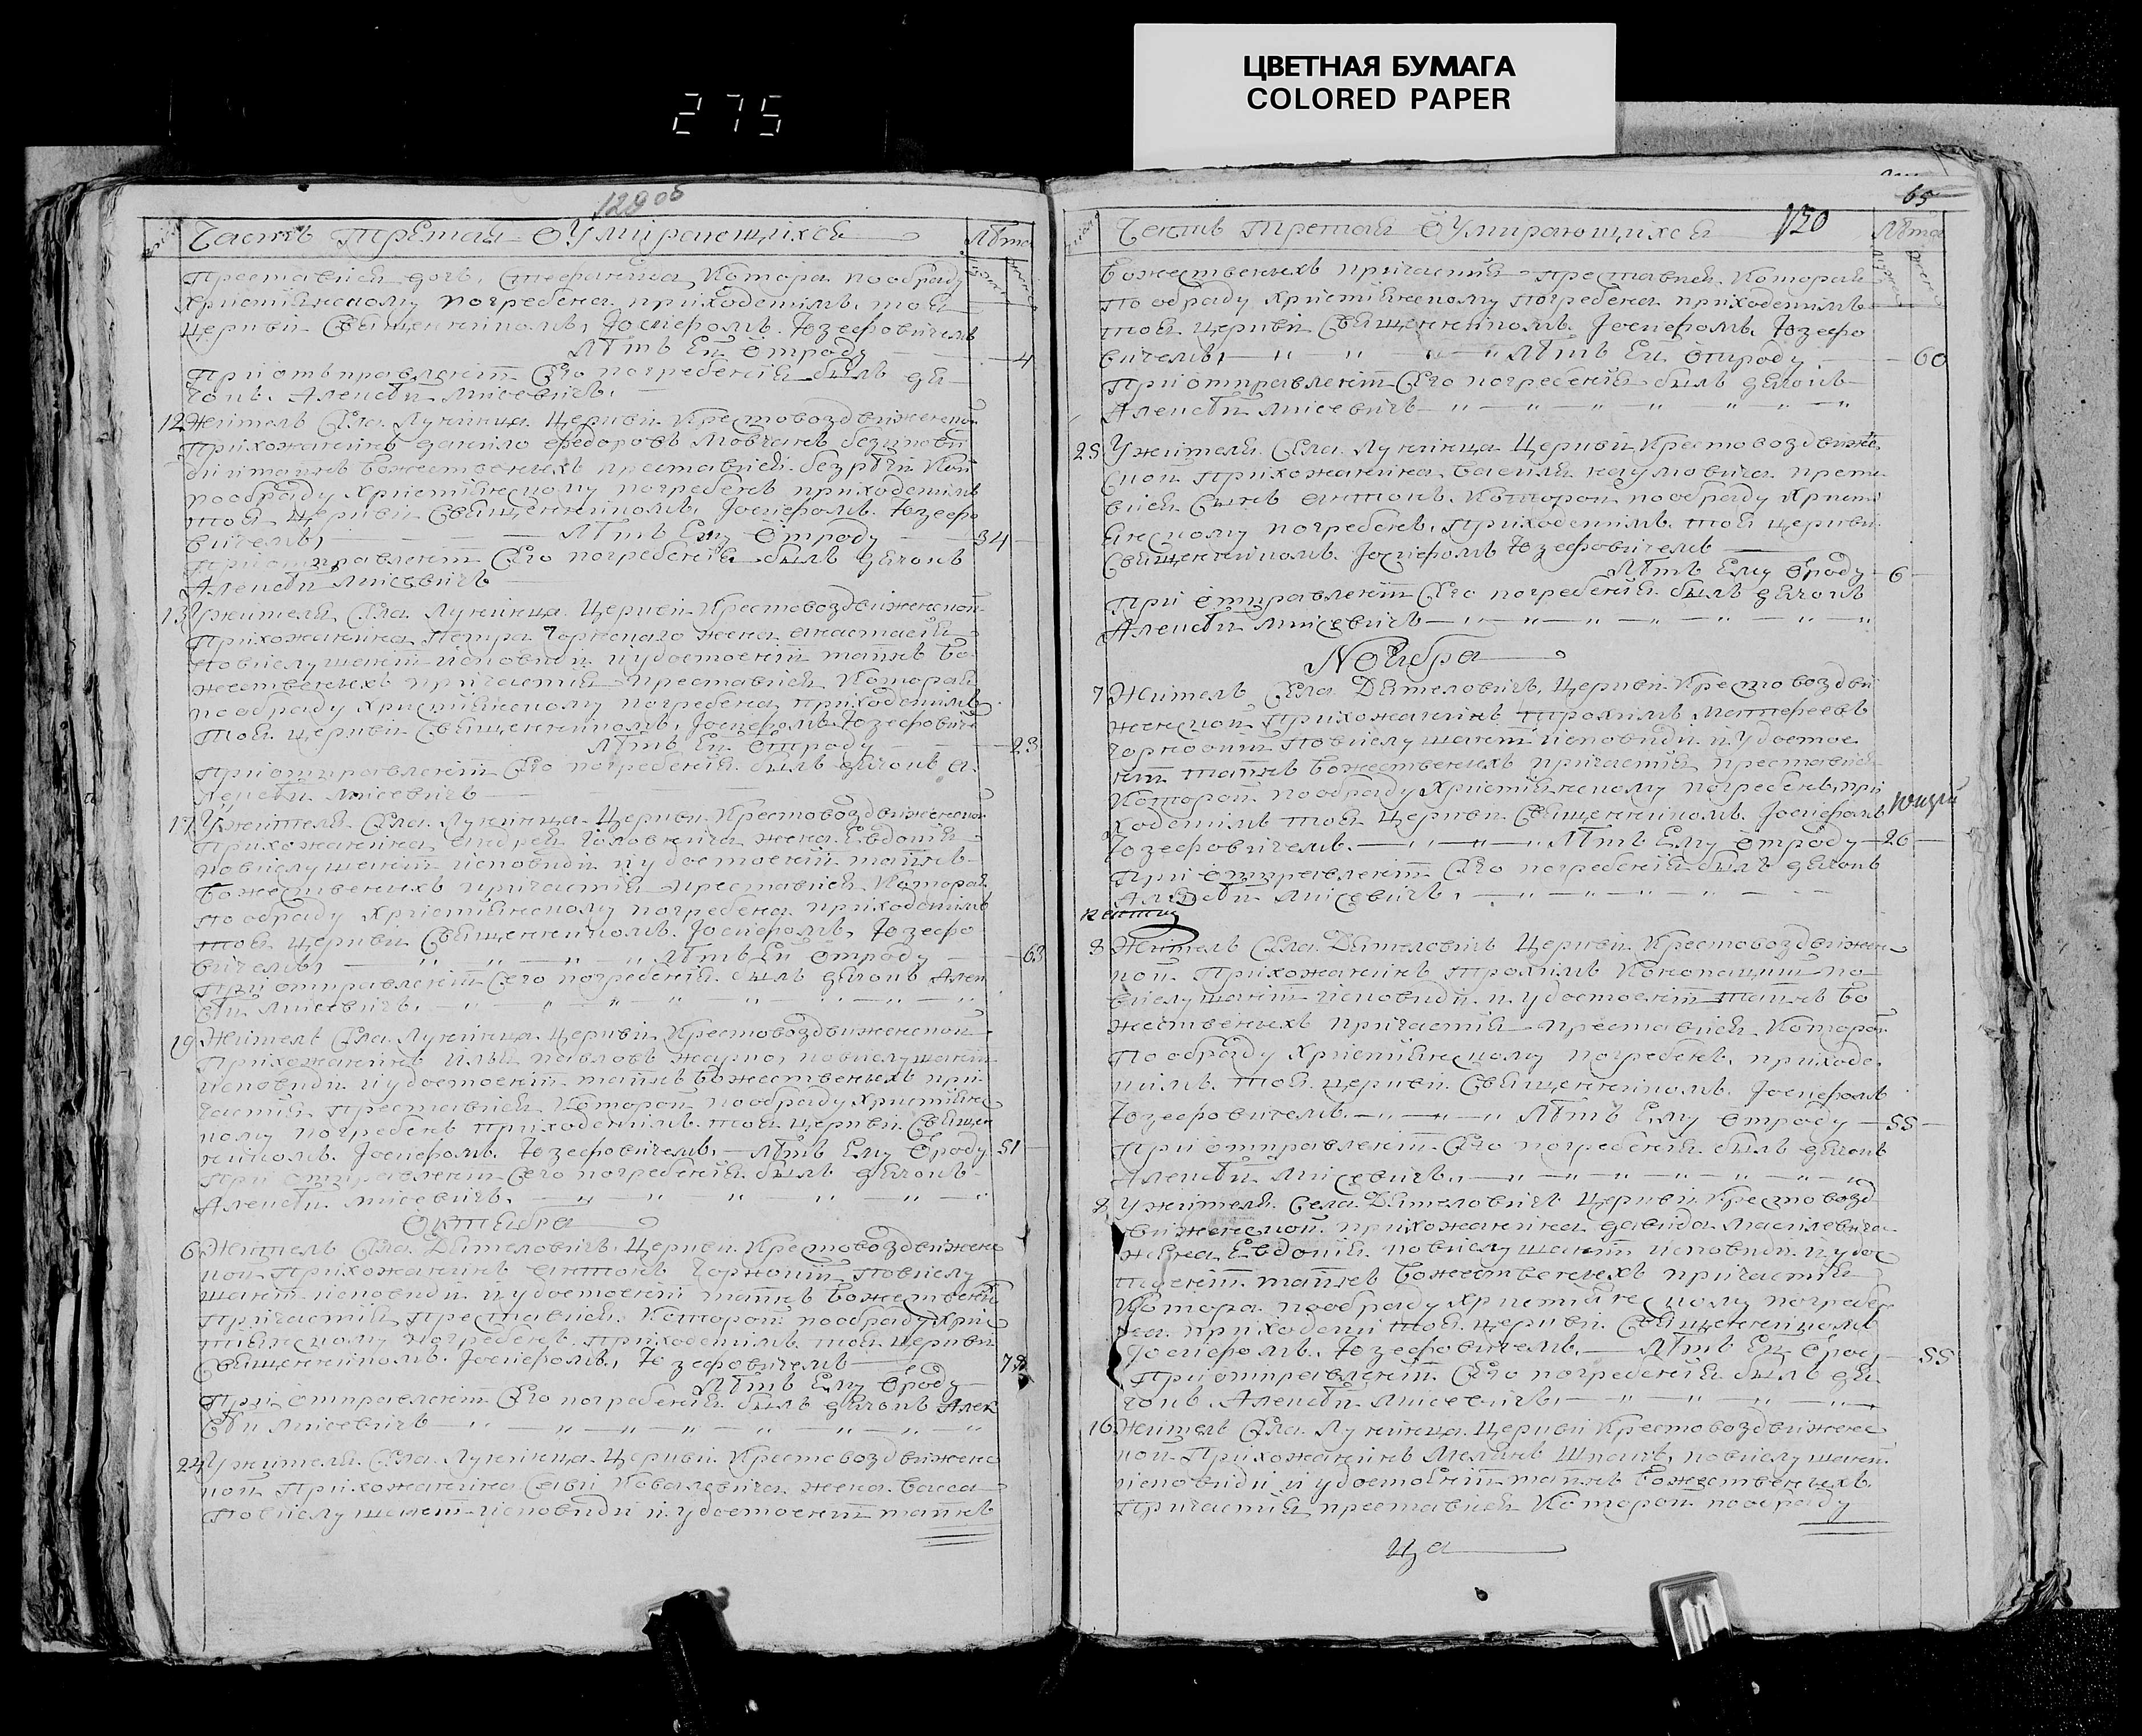 ЦВЕТНАЯ БУМАГА
COLORED PAPER
275
129об
Часть Третая О Умирающихся
Лѣта
Преставися дочь, Стефанида Котора пообраду
Християнскому погребена приходскимъ тоя
Церкви Священникомъ, Іосифомъ Юзефовичемъ
Лѣтъ Ей Отроду 4
При отправленіи Сего погребения былъ дя
чокъ Алексѣй Лисевичъ
12 Житель Села Лунинца Церкви Крестовоздвиженской
Прихожанинъ данило федоровъ
божественыхъ преставися
пообраду Християнскому погребенъ приходскимъ
тоя Церкви Священникомъ Іосифомъ Юзефо
вичемъ, Лѣтъ Ему Отроду 34
При отправленіи Сего погребения былъ дячокъ
Алексѣй Лисевичъ
13 Ужителя Села Лунинца Церкви Крестовоздвиженской
Прихожанина Петра жена анастасия
Повислушаніи исповиди иудостоеніи таинъ Бо
жественыхъ причастия Преставися Которая
пообраду християнскому погребена приходскимъ
тоя церкви Священникомъ, Іосифомъ Юзефовиче
Лѣтъ Ей Отроду 23
При отправленіи Сего погребения былъ дячокъ а
лексѣй Лисевичъ
17 Ужителя Села Лунинца Церкви Крестовоздвиженской
Прихожанина андрея жена Евдокия
повислушаніи исповиди иудостоеніи таинъ
Божественыхъ причастия преставися Которая
пообраду християнскому погребена приходскимъ
тоя церкви Священникомъ Іосифомъ, Юзефо
вичемъ, Лѣтъ Ей Отроду 63
При отправленіи Сего погребения былъ дячокъ Алек
сѣй Лисевичъ
19 Житель Села Лунинца Церкви Крестовоздвиженской
Прихожанинъ илья павловъ повислушаніи
исповиди иудостоеніи таинъ Божественыхъ при
частия Преставися Которой пообраду християнс
кому погребенъ приходскимъ тоя церкви Священ
никомъ Іосифомъ Юзефовичемъ, Лѣтъ Ему Ѿроду 51
При отправленіи Сего погребения былъ дячокъ
Алексѣй Лисевичъ
Октября
6 Житель Села Дятеловичъ Церкви Крестовоздвиженс
кой Прихожанинъ антонъ Повислу
шаніи исповиди иудостоеніи таинъ Божествены
Причастия Преставися Которой пообраду Хрис
тиянскому погребенъ приходскимъ тоя церкви
Священникомъ Іосифомъ, Юзефовичемъ
Лѣтъ Ему Ѿроду
При отправленіи Сего погребения былъ дячокъ Алек
сѣй Лисевичъ
24 Ужителя Села Лунинца Церкви Крестовоздвиженс
кой Прихожанина Савы Ковалевича жена Васса
Повислушаніи исповиди иудостоеніи таинъ
65
130
Часть Третая О Умирающихся
Лѣта
Божественыхъ причастия преставися Которая
По обраду християнскому погребена приходскимъ
тоя церкви Священникомъ Іосифомъ, Юзефо
вичемъ, Лѣтъ Ей Отроду 60
При отправленіи Сего погребения былъ дячокъ
Алексѣй Лисевичъ
25 Ужителя Села Лунинца Церкви Крестовоздвиженс
кой Прихожанина василия наумовича преста
вися Сынъ антонъ Которой пообраду Христи
янскому погребенъ Приходскимъ тоя церкви
Священникомъ Іосифомъ Юзефовичемъ
Лѣтъ Ему Ѿроду 6
При отправленіи Сего погребения былъ дячокъ
Алексѣй Лисевичъ
Ноября
7 Житель Села Дятеловичъ Церкви Крестовоздви
женской Прихожанинъ Трохимъ
Повислушаніи исповиди иУдостое
ніи таинъ Божественыхъ причастия преставися
Которой пообраду Християнскому погребенъ при
ходскимъ тоя церкви Священникомъ Іосифомъ
Юзефовичемъ Лѣтъ Ему Отроду 26
При отправленіи Сего погребения былъ дячокъ
Алексѣй Лисевичъ
8 Житель Села Дятеловичъ Церкви Крестовоздвиженс
кой Прихожанинъ Трохимъ по
вислушаніи исповиди иудостоеніи таинъ Бо
жественыхъ Причастия преставися Которой
По обраду Християнскому погребенъ приходс
кимъ тоя церкви Священникомъ Іосифомъ
Юзефовичемъ Лѣтъ Ему Отроду 55
При отправленіи Сего погребения былъ дячокъ
Алексѣй Лисевичъ
8 Ужителя Села Дятеловичъ Церкви Крестовозд
виженской прихожанина давида
жена Евдокия повислушаніи исповиди иудос
тоеніи таинъ Божественыхъ причастия
Котора пообраду християнскому погребе
на приходски тоя церкви Священникомъ
Іосифомъ, Юзефовичемъ, Лѣтъ Ей Ѿрод 55
При отправленіи Сего погребения былъ дя
чокъ Алексѣй Лисевичъ
16 Житель Села Лунинца Церкви Крестовоздвиженс
кой Прихожанинъ повислушаніи
исповиди иудостоеніи таинъ Божественыхъ
Причастия преставися Которой пообраду
ца